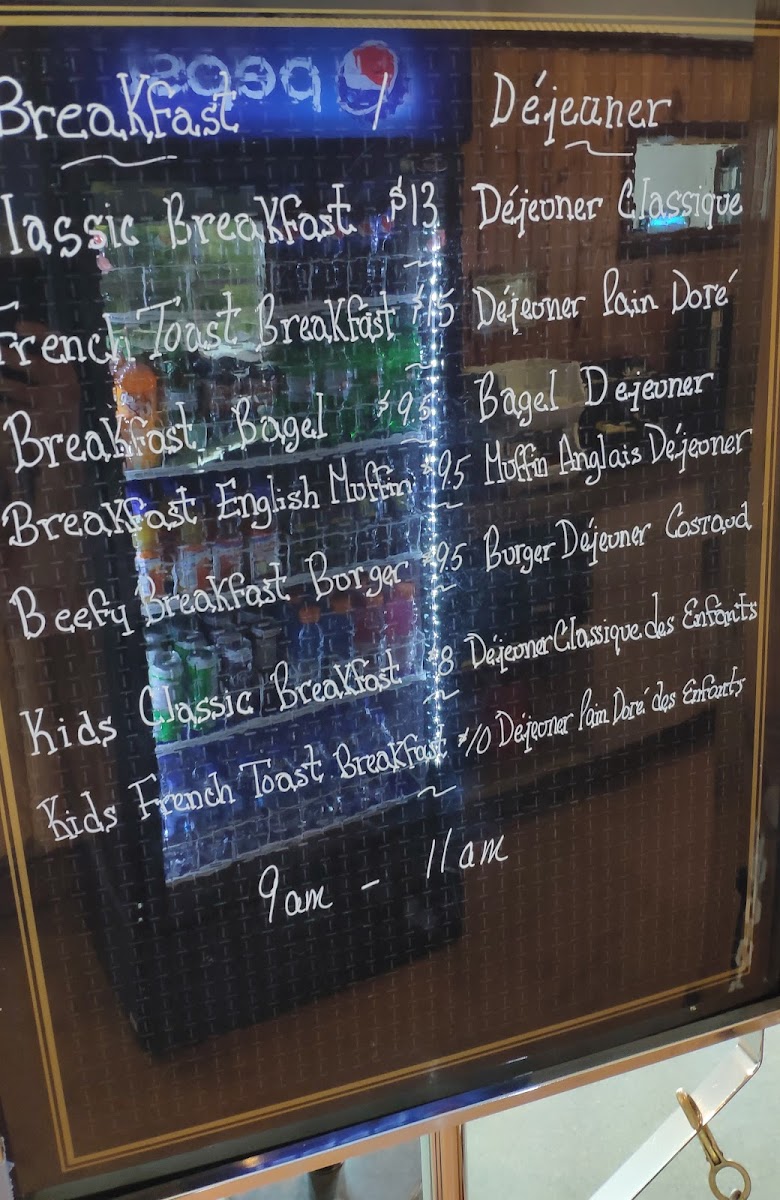 Breakfast / Déjeuner
lassic Breakfast $13 Déjeuner Classique
French Toast Breakfast $15 Déjeuner Pain Doré
Breakfast Bagel $9.5 Bagel Dejeuner
Breakfast English Muffin $9.5 Muffin Anglais Déjeuner
Beefy Breakfast Burger $9.5 Burger Déjeuner Costaud
Kids Classic Breakfast $8 Déjeuner Classique des Enfants
Kids French Toast Breakfast $10 Déjeuner Pain Doré des Enfants
9am - 11am
pepsi